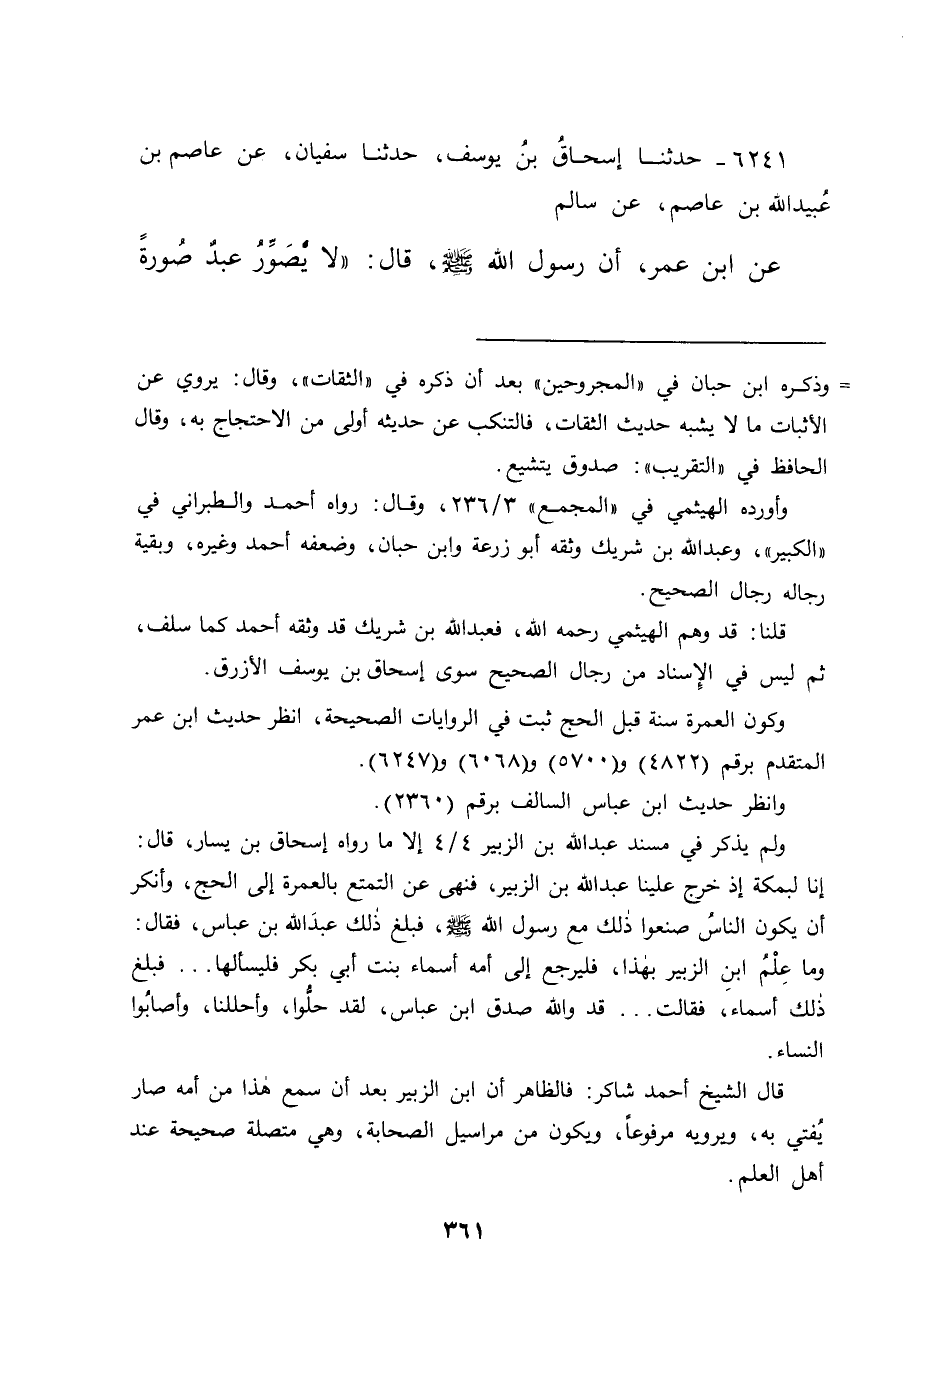 ٦٢٤١ ـ حدثنـا إسحـاقُ بنُ يوسف، حدثنـا سفيان، عن عاصم بن
عُبيدالله بن عاصم، عن سالم
عن ابن عمر، أن رسول الله ﷺ، قال: «لا يُصَوِّرُ عبدٌ صُورةً
= وذكـره ابن حبان في «المجروحين» بعد أن ذكره في «الثقات»، وقال: يروي عن
الأثبات ما لا يشبه حديث الثقات، فالتنكب عن حديثه أولى من الاحتجاج به، وقال
الحافظ في «التقريب»: صدوق يتشيع.
وأورده الهيثمي في «المجمع» ٢٣٦/٣، وقـال: رواه أحمـد والـطبراني في
«الكبير»، وعبدالله بن شريك وثقه أبو زرعة وابن حبان، وضعفه أحمد وغيره، وبقية
رجاله رجال الصحيح.
قلنا: قد وهم الهيثمي رحمه الله، فعبدالله بن شريك قد وثقه أحمد كما سلف،
ثم ليس في الإسناد من رجال الصحيح سوى إسحاق بن يوسف الأزرق.
وكون العمرة سنة قبل الحج ثبت في الروايات الصحيحة، انظر حديث ابن عمر
المتقدم برقم (٤٨٢٢) و(٥٧٠٠) و(٦٠٦٨) و(٦٢٤٧).
وانظر حديث ابن عباس السالف برقم (٢٣٦٠).
ولم يذكر في مسند عبدالله بن الزبير ٤/٤ إلا ما رواه إسحاق بن يسار، قال:
إنا لبمكة إذ خرج علينا عبدالله بن الزبير، فنهى عن التمتع بالعمرة إلى الحج، وأنكر
أن يكون الناسُ صنعوا ذٰلك مع رسول الله ﷺ، فبلغ ذٰلك عبدَالله بن عباس، فقال:
وما عِلْمُ ابنِ الزبير بهٰذا، فليرجع إلى أمه أسماء بنت أبي بكر فليسألها... فبلغ
ذٰلك أسماء، فقالت... قد والله صدق ابن عباس، لقد حلُّوا، وأحللنا، وأصابُوا
النساء.
قال الشيخ أحمد شاكر: فالظاهر أن ابن الزبير بعد أن سمع هٰذا من أمه صار
يُفتي به، ويرويه مرفوعاً، ويكون من مراسيل الصحابة، وهي متصلة صحيحة عند
أهل العلم.
٣٦١